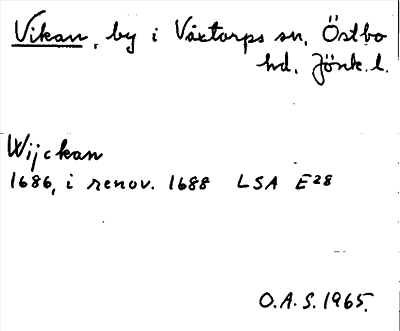 Vikan, by i Växtorps sn, Östbo
hd, Jönk. l.
Wijckan
1686, i renov. 1688 LSA E28
O.A.S. 1965.